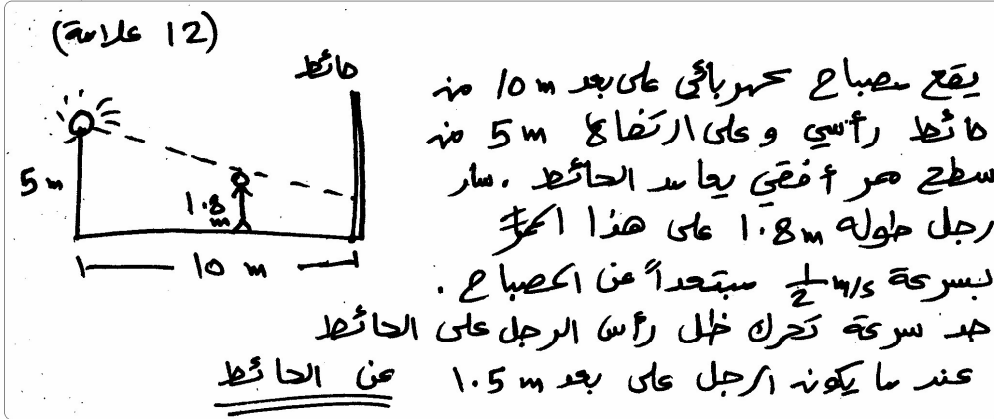 (12 علامة)
حائط
5 m
1.8 m
10 m
يقع مصباح كهربائي على بعد 10 m من
حائط رأسي وعلى ارتفاع 5 m من
سطح ممر أفقي يعامد الحائط . سار
رجل طوله 1.8 m على هذا الممر
بسرعة 1/2 m/s مبتعداً عن المصباح .
جد سرعة تحرك ظل رأس الرجل على الحائط
عندما يكون الرجل على بعد 1.5 m عن الحائط